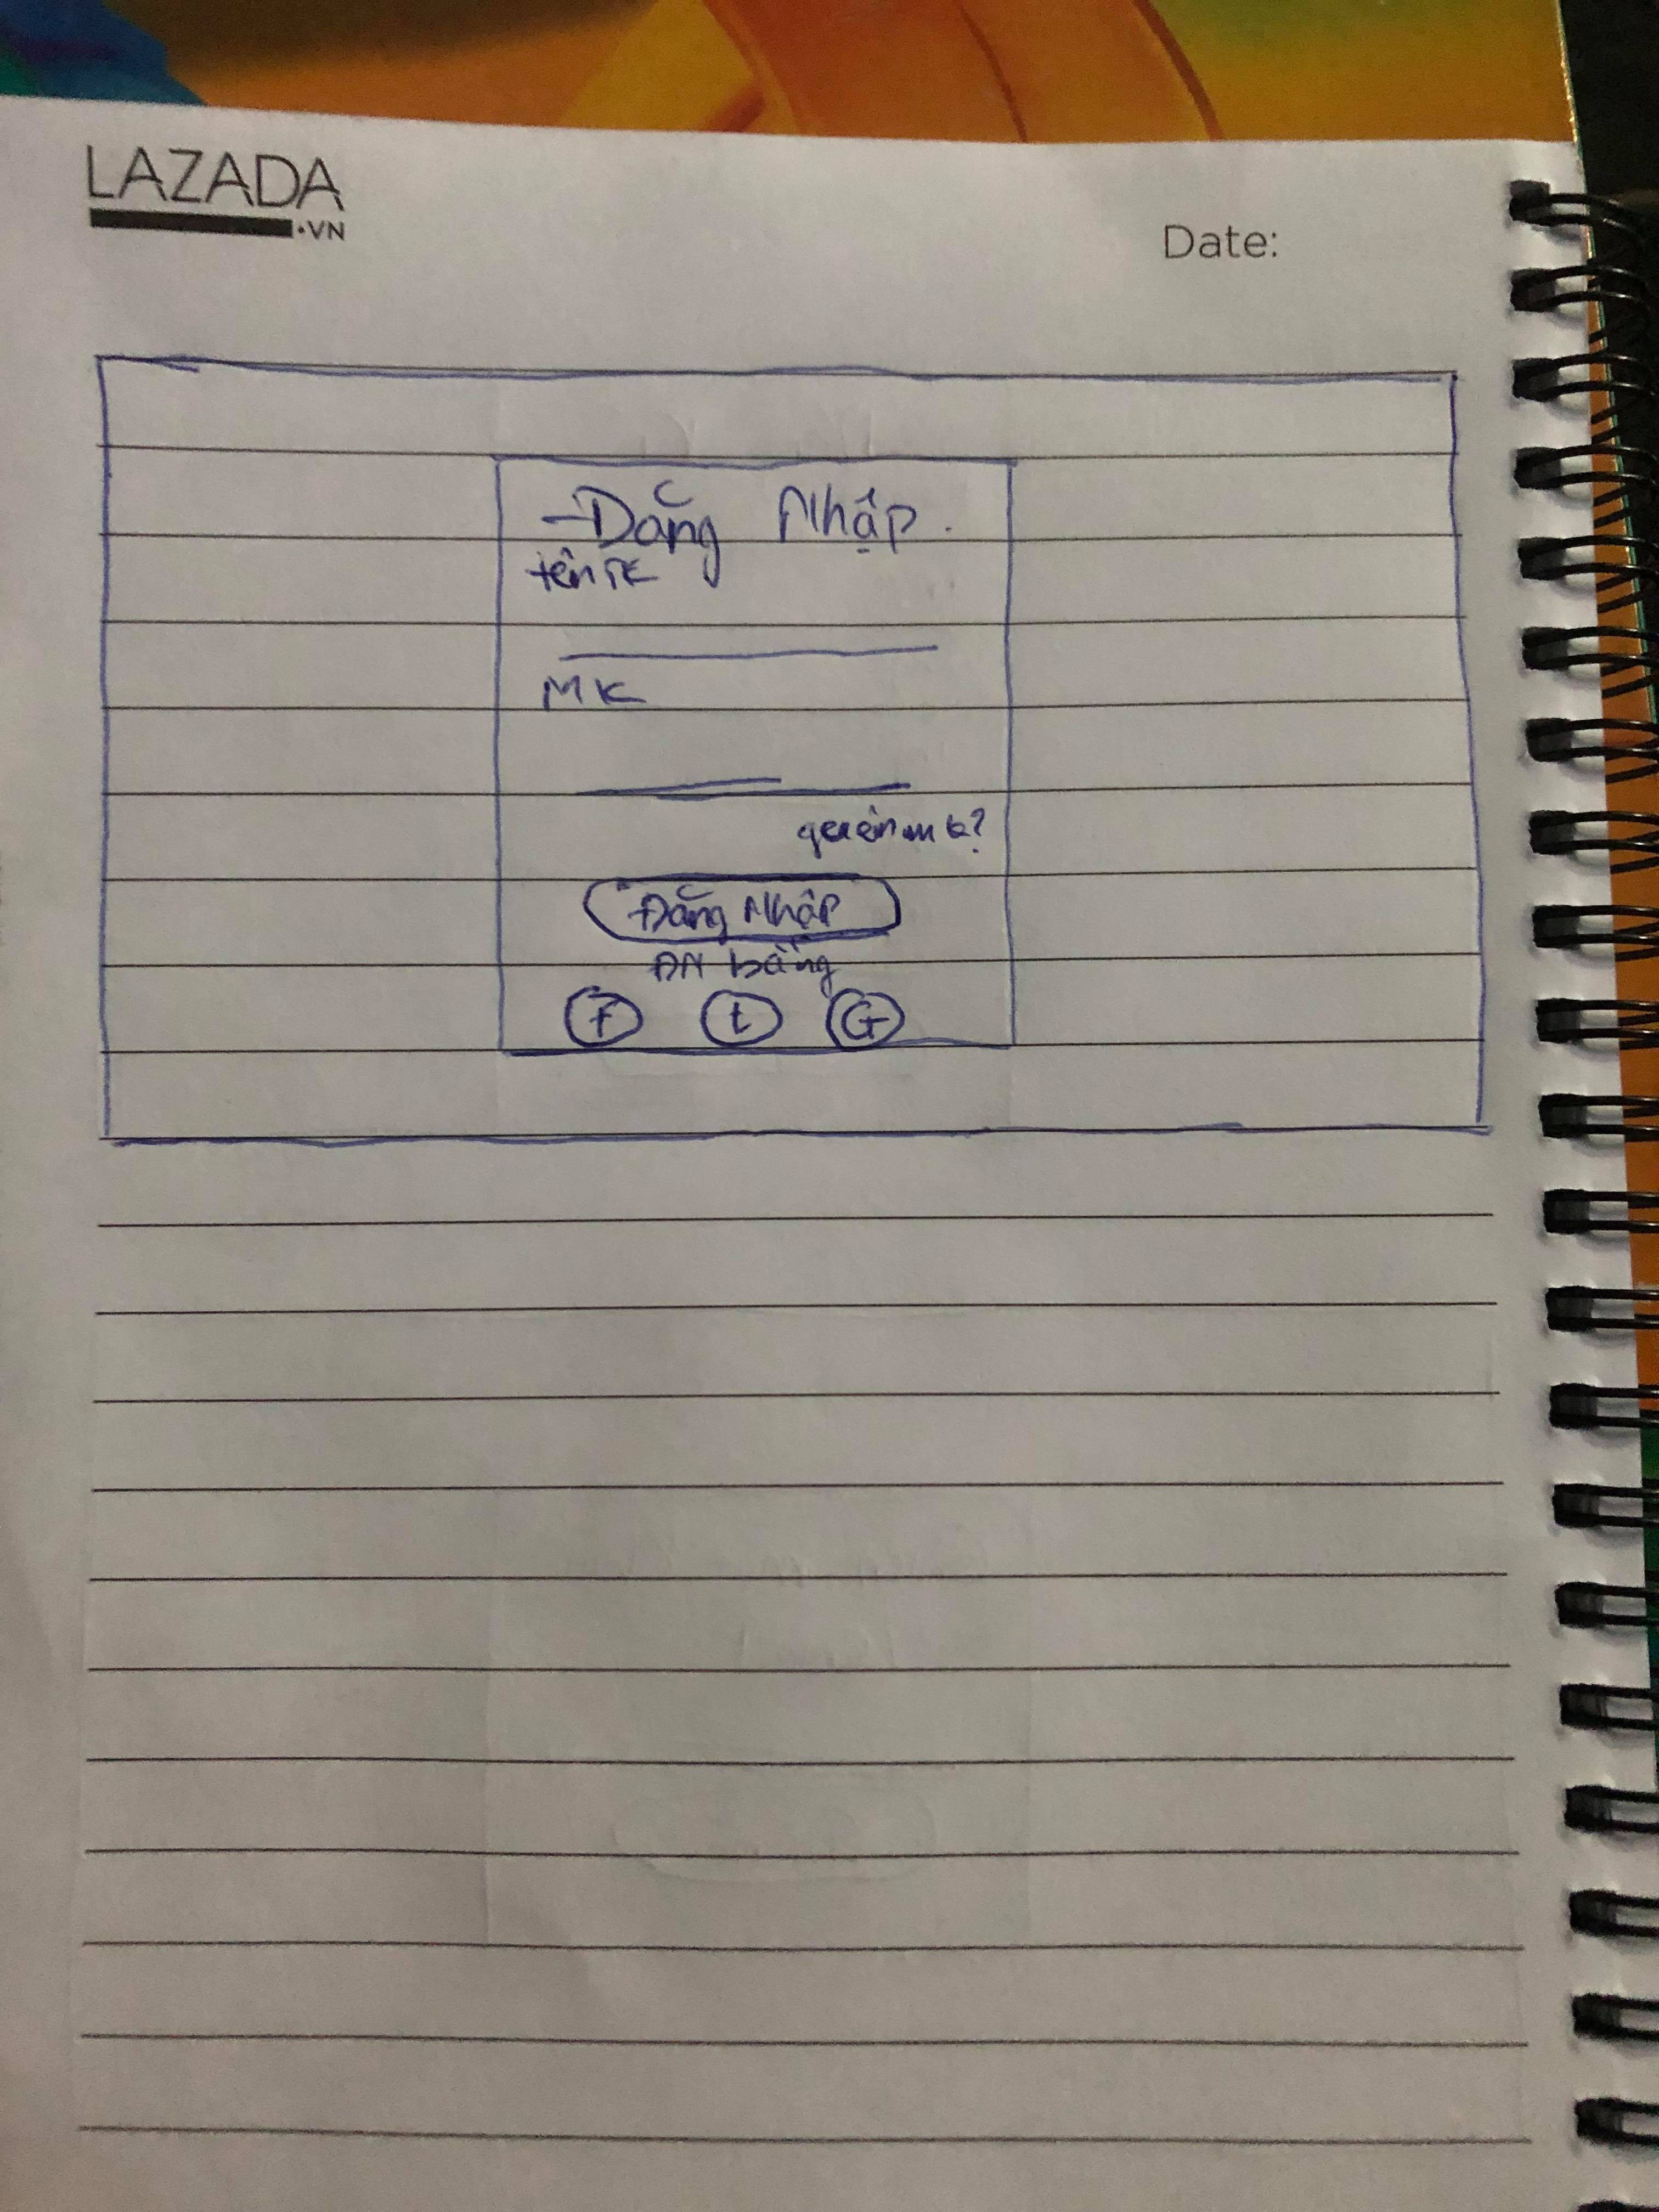 LAZADA
.VN
Date:
Đăng Nhập.
tên TK
MK
quên mk?
Đăng Nhập
ĐN bằng
f t G